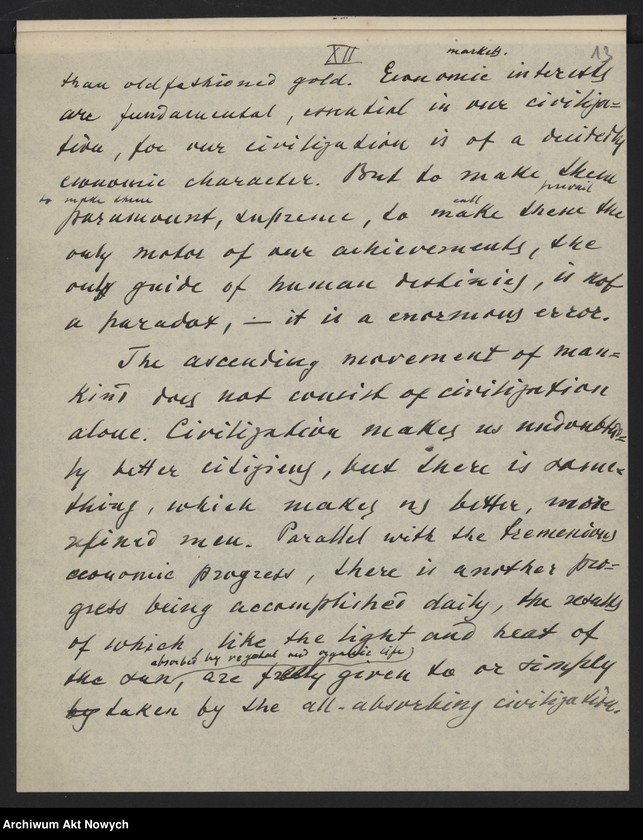 XII
13
markets.
than oldfashioned gold. Economic interests
are fundamental, essential in our civiliza=
tion, for our civilization is of a decidedly
economic character. But to make them
prevail
to make them
call
paramount, supreme, to make them the
only motor of our achievements, the
only guide of human destinies, is not
a paradox, — it is a enormous error.
The ascending movement of man=
kind does not consist of civilization
alone. Civilization makes us undoubted=
ly better citizens, but there is some=
thing, which makes us better, more
refined men. Parallel with the tremenious
economic progress, there is another pro=
gress being accomplished daily, the results
of which like the light and heat of
absorbed by vegetal and organic life)
the sun, are freely given to or simply
by taken by the all-absorbing civilization.
Archiwum Akt Nowych